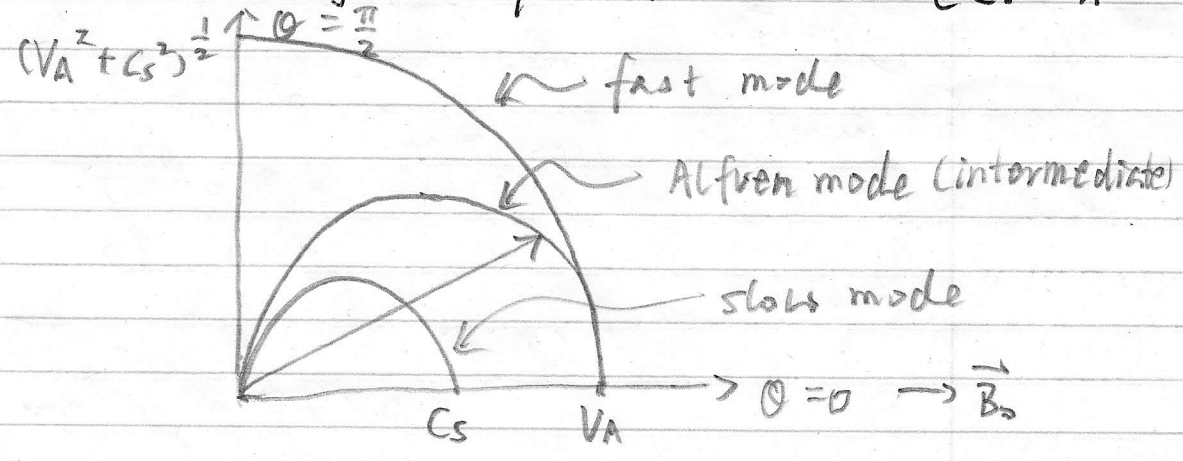 θ = π/2
(V_A² + C_s²)^{1/2}
fast mode
Alfven mode (intermediate)
slow mode
C_s
V_A
θ = 0 → B⃗₀